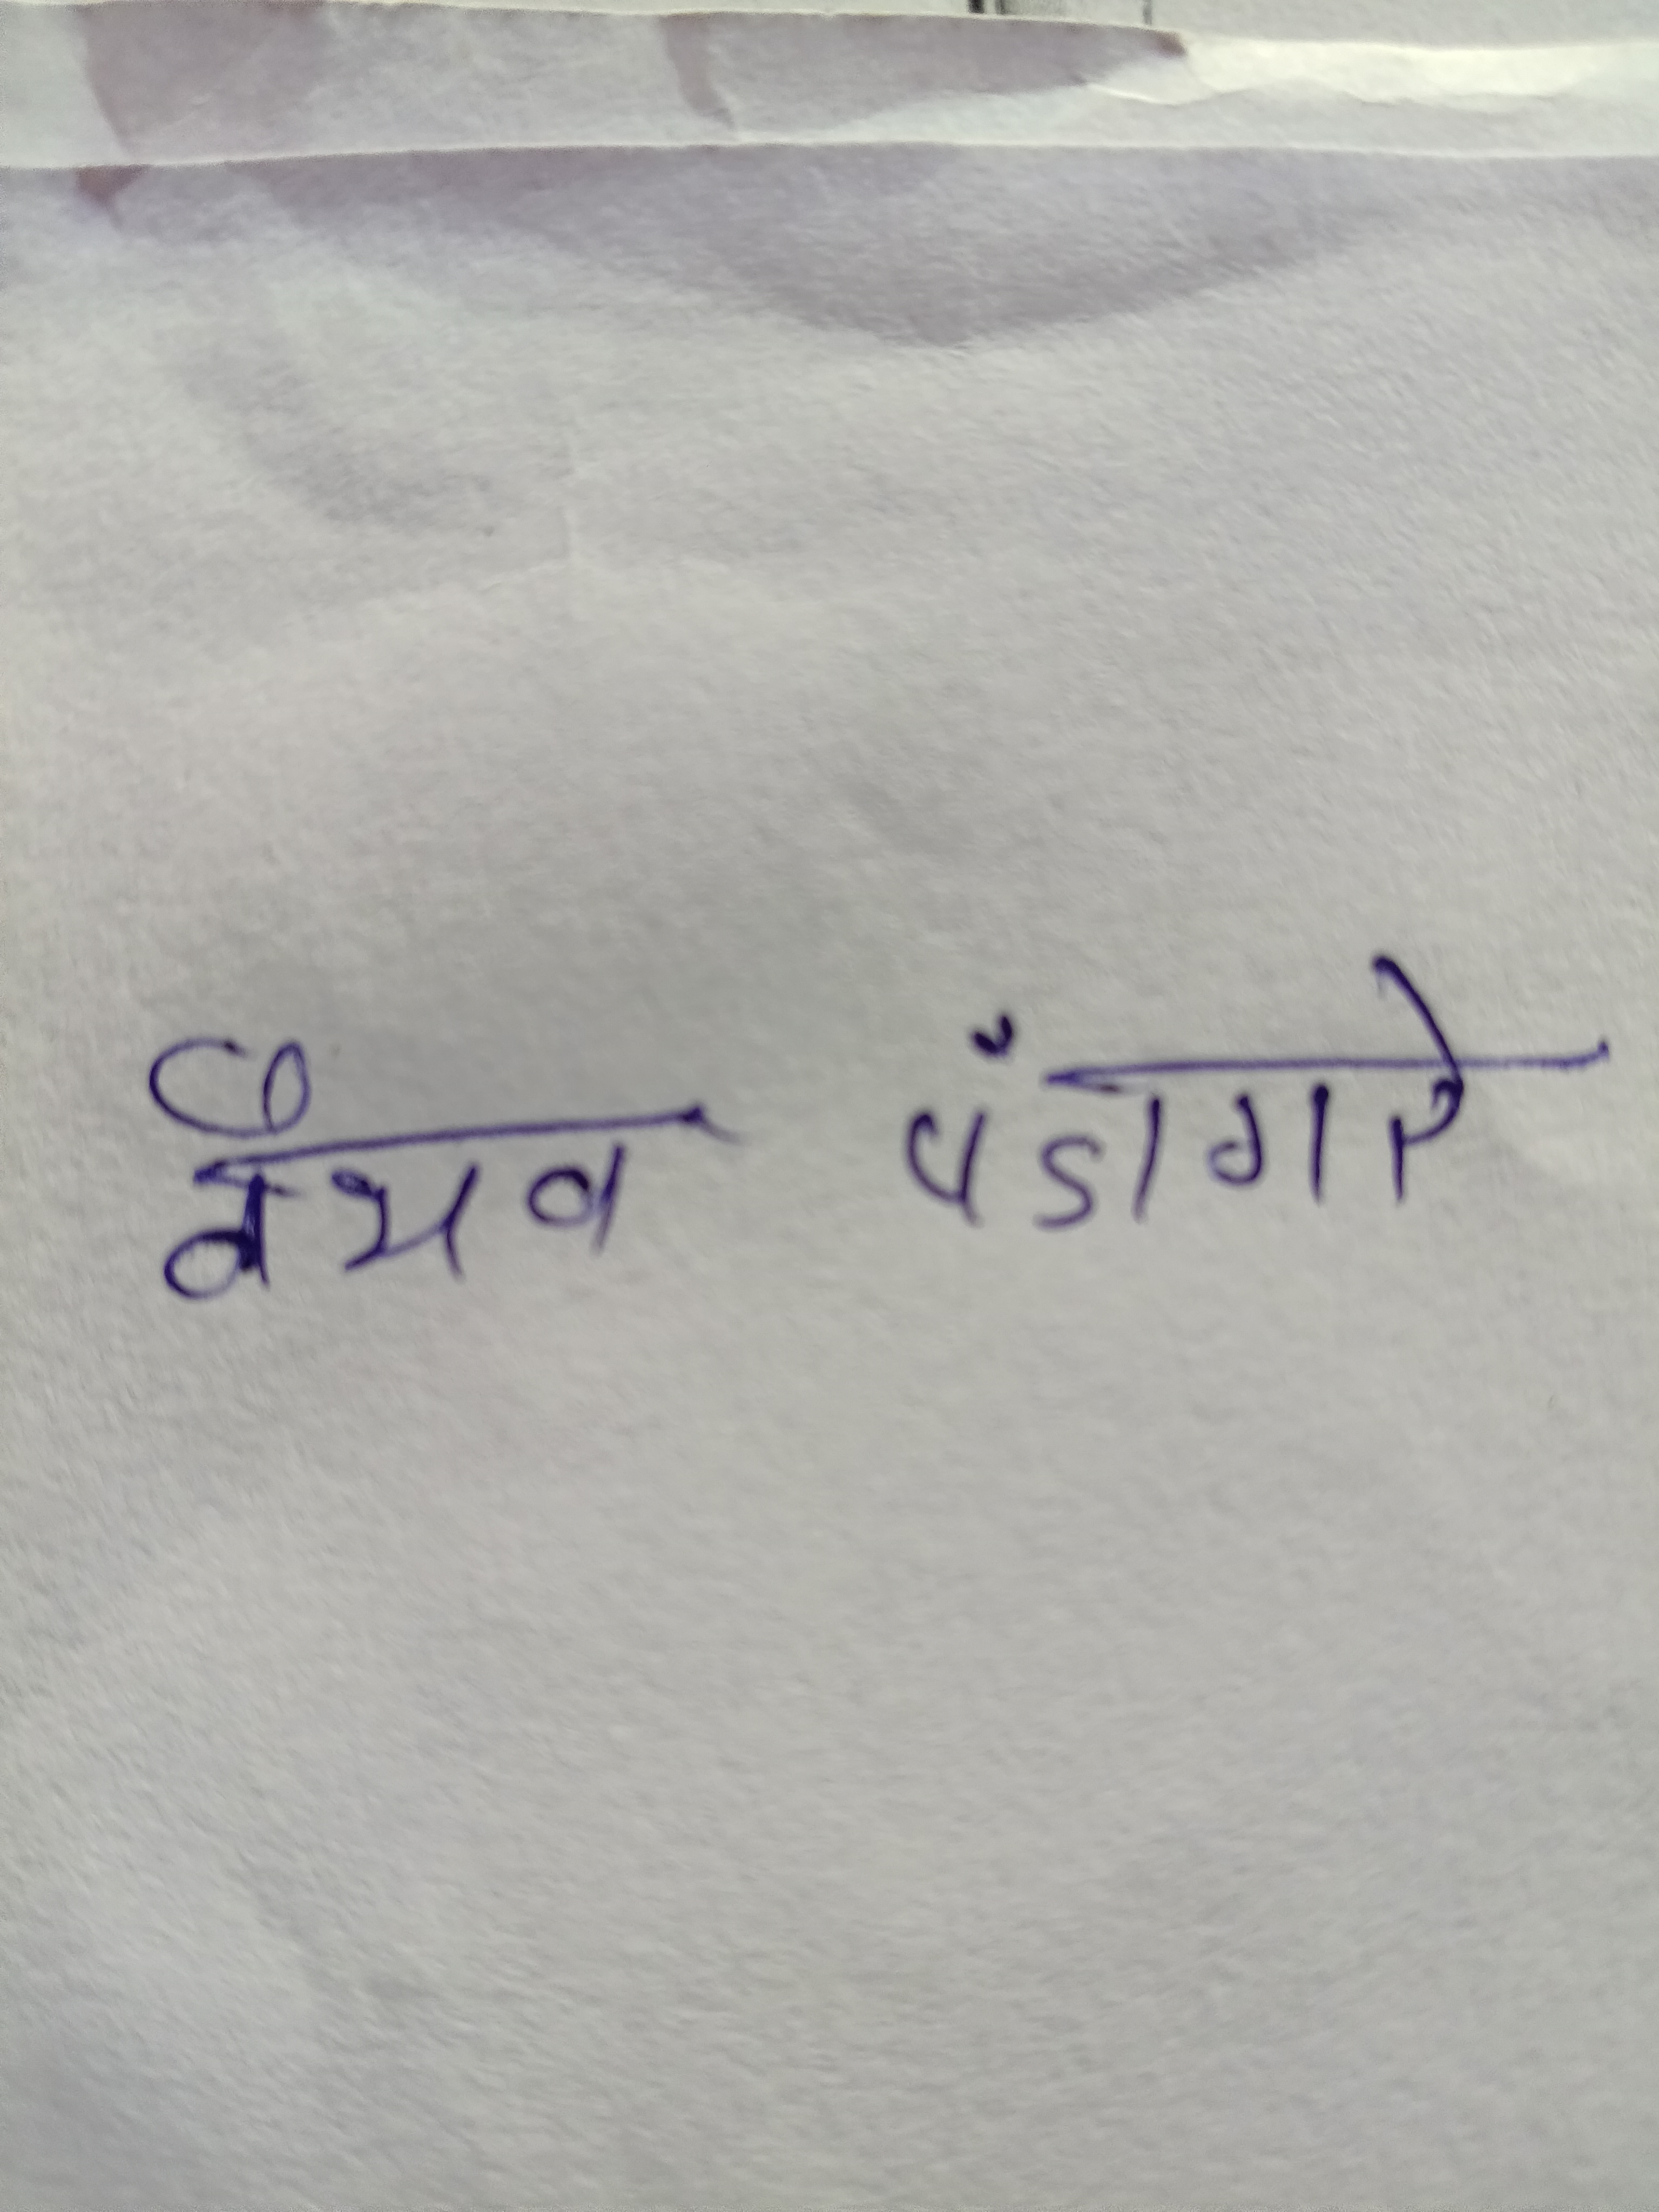 वैभव पंडागरे